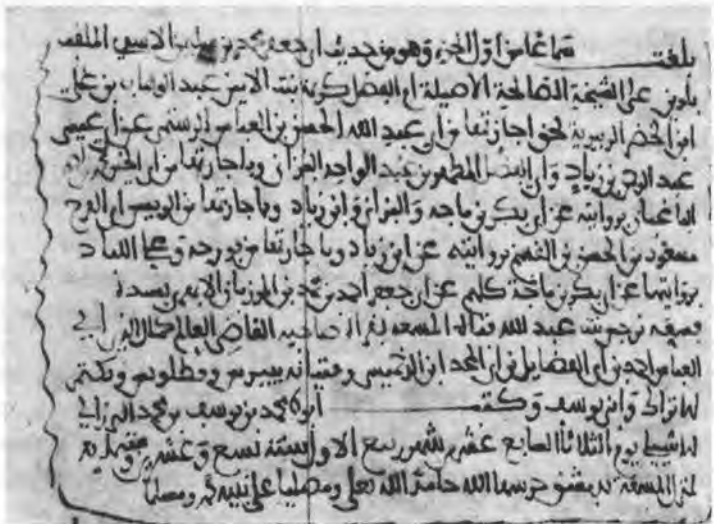 بلغت سماعا من اول الجزء وهو من حديث ابي جعفر محمد بن سليمن الاسدي الملقب
بلوين على الشيخة الصالحة الاصيلة ام الفضل كريمة بنت الامين عبد الوهاب بن علي
ابن الخضر الزبيرية بحق اجازتها من ابي عبد الله الحسن بن العباس الرستمي عن ابي عيسى
عبد الرحمن بن زياد وابي الفضل المطهر بن عبد الواحد البزاني وباجازتها من ابي الخير محمد
الباغبان بروايته عن ابي بكر بن ماجه والبزاني وابن زياد وباجازتها من الرييس ابي الفرج
مسعود بن الحسن بن القسم بروايته عن ابن زياد وباجازتها من ورجه وعلي اللباد
بروايتهما عن ابي بكر بن ماجة كلهم عن ابي جعفر احمد بن محمد بن المرزبان الابهري بسنده
فسمعه عبد الله فتاه المسمعة صاحبه القاضي العالم جمال الدين ابي
العباس احمد بن ابي الفضايل بن ابي المجد ابن الدخميسي وفتيانه بيبرس و وبكتمر
وابن يوسف وكتب محمد بن يوسف بن محمد البرزالي
الاشبيلي يوم الثلاثا السابع عشر من شهر ربيع الاول سنة تسع وعشرين وستماية
بمنزل المسمعة بدمشق حرسها الله حامدا لله تعلى ومصليا على نبيه محمد ومسلما